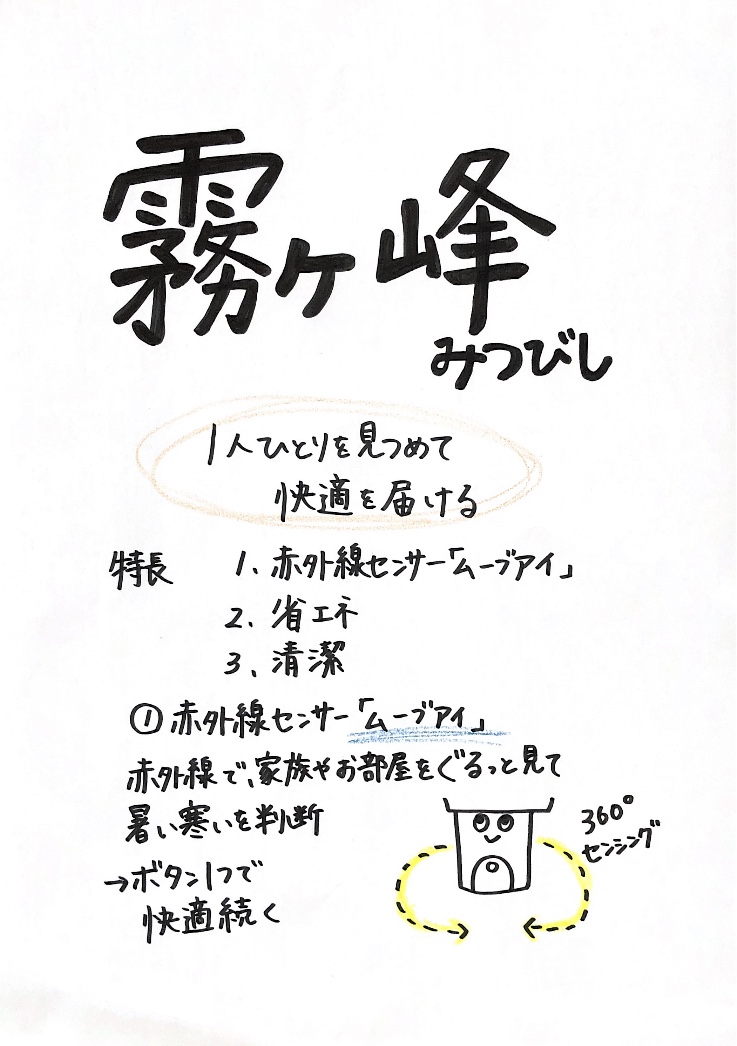 霧ヶ峰
みつびし
1人ひとりを見つめて
快適を届ける
特長 1. 赤外線センサー「ムーブアイ」
2. 省エネ
3. 清潔
① 赤外線センサー「ムーブアイ」
赤外線で、家族やお部屋をぐるっと見て
暑い寒いを判断
→ボタン1つで
快適続く
360°
センシング